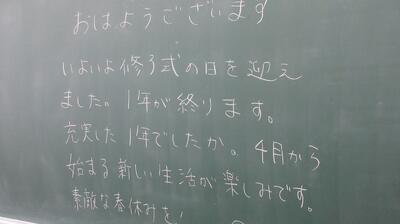 おはようございます
いよいよ修了式の日を迎え
ました。1年が終ります。
充実した1年でしたか。4月から
始まる新しい生活が楽しみです。
素敵な春休みを!